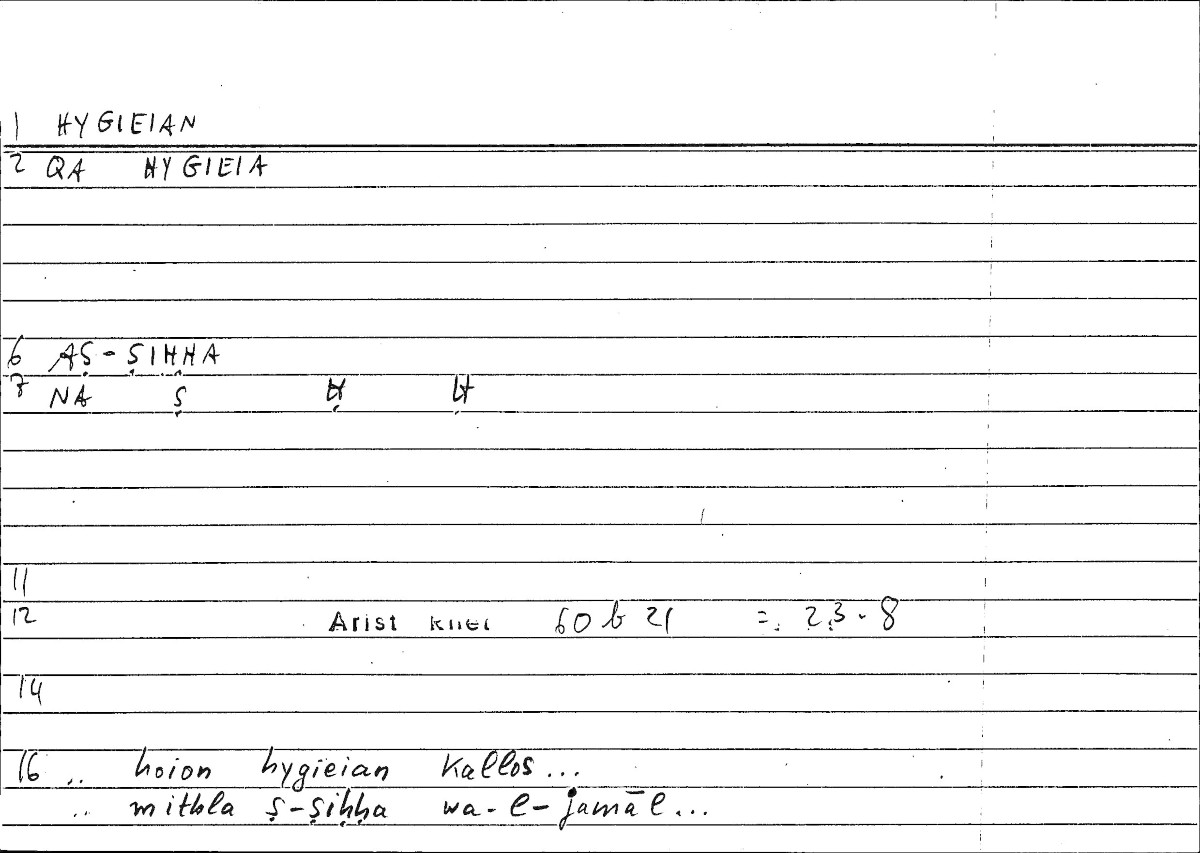 1 HYGIEIAN
2 QA HYGIEIA
6 AṢ-ṢIḤḤA
7 NA Ṣ Ḥ Ḥ
11
12 Arist Rhet 60 b 21 = 23.8
14
16 .. hoion hygieian kallos...
.. mithla ṣ-ṣiḥḥa wa-l-jamāl...